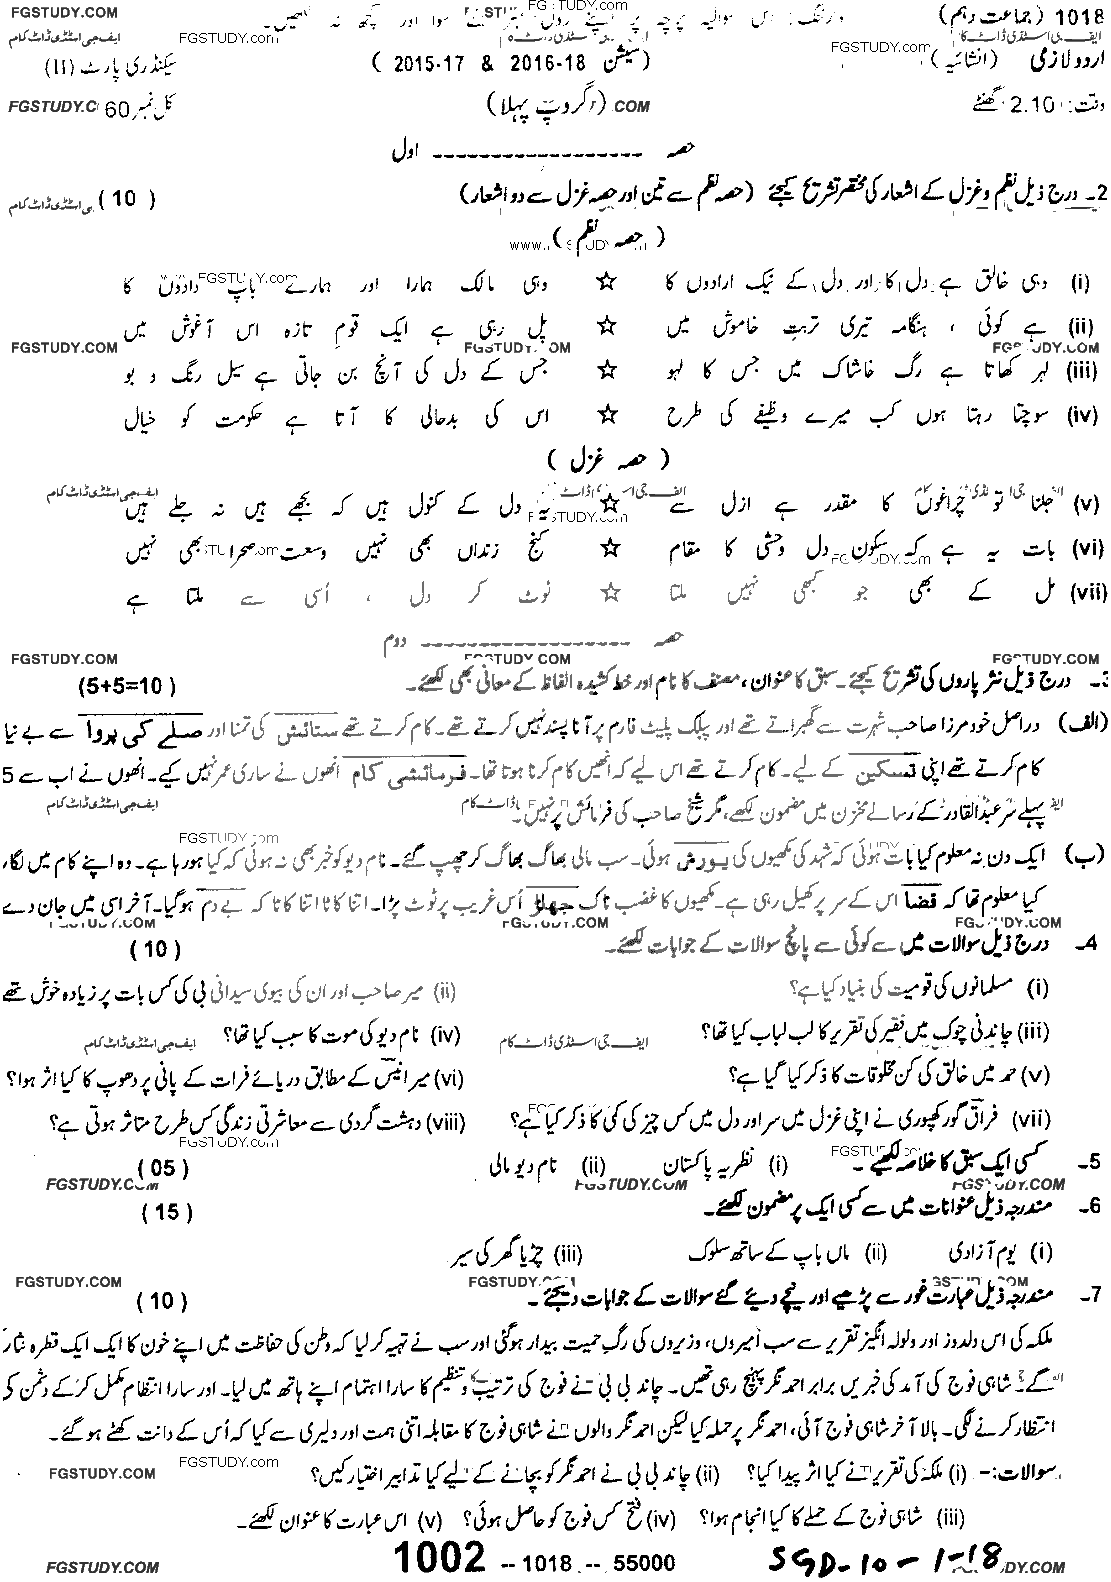 FGSTUDY.COM وارننگ: اس سوالیہ پرچہ پر اپنے رول نمبر کے سوا اور کچھ نہ لکھیں۔ (جماعت دہم) 1018
ایف جی اسٹڈی ڈاٹ کام FGSTUDY.com ایف جی اسٹڈی ڈاٹ کام FGSTUDY.com
سیکنڈری پارٹ (II) (سیشن 2016-18 & 2015-17) اردو لازمی (انشائیہ)
FGSTUDY.C کل نمبر 60 (گروپ پہلا) .COM وقت: 2.10 گھنٹے
حصہ ------------------- اول
2۔ درج ذیل نظم و غزل کے اشعار کی مختصر تشریح کیجئے (حصہ نظم سے تین اور حصہ غزل سے دو اشعار) (10)
(حصہ نظم)
(i) وہی خالق ہے دل کا اور دل کے نیک ارادوں کا ☆ وہی مالک ہمارا اور ہمارے باپ دادوں کا
(ii) ہے کوئی ، ہنگامہ تیری تربتِ خاموش میں ☆ پل رہی ہے ایک قومِ تازہ اس آغوش میں
FGSTUDY.COM FGSTUDY.COM FGSTUDY.COM
(iii) لہر کھاتا ہے رگِ خاشاک میں جس کا لہو ☆ جس کے دل کی آنچ بن جاتی ہے سیلِ رنگ و بو
(iv) سوچتا رہتا ہوں کب میرے وظیفے کی طرح ☆ اس کی بدحالی کا آتا ہے حکومت کو خیال
(حصہ غزل)
(v) جلنا تو چراغوں کا مقدر ہے ازل سے ☆ یہ دل کے کنول ہیں کہ بجھے ہیں نہ جلے ہیں
(vi) بات یہ ہے کہ سکونِ دل وحشی کا مقام ☆ کنج زنداں بھی نہیں وسعت صحرا بھی نہیں
(vii) مل کے بھی جو کبھی نہیں ملتا ☆ ٹوٹ کر دل ، اُسی سے ملتا ہے
حصہ ------------------- دوم
FGSTUDY.COM FGSTUDY.COM FGSTUDY.COM
3۔ درج ذیل نثر پاروں کی تشریح کیجئے۔ سبق کا عنوان، مصنف کا نام اور خط کشیدہ الفاظ کے معانی بھی لکھئے۔ (5+5=10)
(الف) دراصل خود مرزا صاحب شہرت سے گھبراتے تھے اور پبلک پلیٹ فارم پر آنا پسند نہیں کرتے تھے۔ کام کرتے تھے ستائش کی تمنا اور صلے کی پروا سے بے نیاز
کام کرتے تھے اپنی تسکین کے لیے۔ کام کرتے تھے اس لیے کہ انھیں کام کرنا ہوتا تھا۔ فرمائشی کام انھوں نے ساری عمر نہیں کیے۔ انھوں نے اب سے 5
پہلے سر عبدالقادر کے رسالے مخزن میں مضمون لکھے، مگر شیخ صاحب کی فرمائش پر نہیں۔
FGSTUDY.com
(ب) ایک دن نہ معلوم کیا بات ہوئی کہ شہد کی مکھیوں کی یورش ہوئی۔ سب مالی بھاگ بھاگ کر چھپ گئے۔ نام دیو کو خبر بھی نہ ہوئی کہ کیا ہو رہا ہے۔ وہ اپنے کام میں لگا،
کیا معلوم تھا کہ قضا اس کے سر پر کھیل رہی ہے۔ مکھیوں کا غضب ناک جھلڑ اُس غریب پر ٹوٹ پڑا۔ اتنا کاٹا اتنا کاٹا کہ بے دم ہوگیا۔ آخر اسی میں جان دے
FGSTUDY.COM FGSTUDY.COM FGSTUDY.COM
4۔ درج ذیل سوالات میں سے کوئی سے پانچ سوالات کے جوابات لکھئے۔ (10)
(i) مسلمانوں کی قومیت کی بنیاد کیا ہے؟ (ii) میر صاحب اور ان کی بیوی سیدانی بی کی کس بات پر زیادہ خوش تھے
(iii) چاندنی چوک میں فقیر کی تقریر کا لب لباب کیا تھا؟ (iv) نام دیو کی موت کا سبب کیا تھا؟
(v) حمد میں خالق کی کن مخلوقات کا ذکر کیا گیا ہے؟ (vi) میر انیس کے مطابق دریائے فرات کے پانی پر دھوپ کا کیا اثر ہوا؟
(vii) فراق گورکھپوری نے اپنی غزل میں سر اور دل میں کس چیز کی کمی کا ذکر کیا ہے؟ (viii) دہشت گردی سے معاشرتی زندگی کس طرح متاثر ہوتی ہے؟
5۔ کسی ایک سبق کا خلاصہ لکھیے۔ (i) نظریہ پاکستان (ii) نام دیو مالی (05)
FGSTUDY.COM FGSTUDY.COM FGSTUDY.COM
6۔ مندرجہ ذیل عنوانات میں سے کسی ایک پر مضمون لکھئے۔ (15)
(i) یوم آزادی (ii) ماں باپ کے ساتھ سلوک (iii) چڑیا گھر کی سیر
FGSTUDY.COM FGSTUDY.COM FGSTUDY.COM
7۔ مندرجہ ذیل عبارت غور سے پڑھیے اور نیچے دیئے گئے سوالات کے جوابات دیجئے۔ (10)
ملکہ کی اس دلدوز اور ولولہ انگیز تقریر سے سب امیروں، وزیروں کی رگِ حمیت بیدار ہوگئی اور سب نے تہیہ کر لیا کہ وطن کی حفاظت میں اپنے خون کا ایک ایک قطرہ نثار
گے۔ شاہی فوج کی آمد کی خبریں برابر احمد نگر پہنچ رہی تھیں۔ چاند بی بی نے فوج کی ترتیب و تنظیم کا سارا اہتمام اپنے ہاتھ میں لیا۔ اور سارا انتظام مکمل کر کے دشمن کا
انتظار کرنے لگی۔ بالآخر شاہی فوج آئی، احمد نگر پر حملہ کیا لیکن احمد نگر والوں نے شاہی فوج کا مقابلہ اتنی ہمت اور دلیری سے کیا کہ اُس کے دانت کھٹے ہو گئے۔
FGSTUDY.COM FGSTUDY.com
سوالات:- (i) ملکہ کی تقریر نے کیا اثر پیدا کیا؟ (ii) چاند بی بی نے احمد نگر کو بچانے کے لیے کیا تدابیر اختیار کیں؟
(iii) شاہی فوج کے حملے کا کیا انجام ہوا؟ (iv) فتح کس فوج کو حاصل ہوئی؟ (v) اس عبارت کا عنوان لکھئے۔
FGSTUDY.COM 1002 -- 1018 -- 55000 SGD-10-1-18 DY.COM